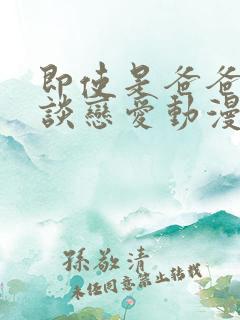 即使是爸爸
談戀愛動漫
孫敬清
未经同意禁止转载